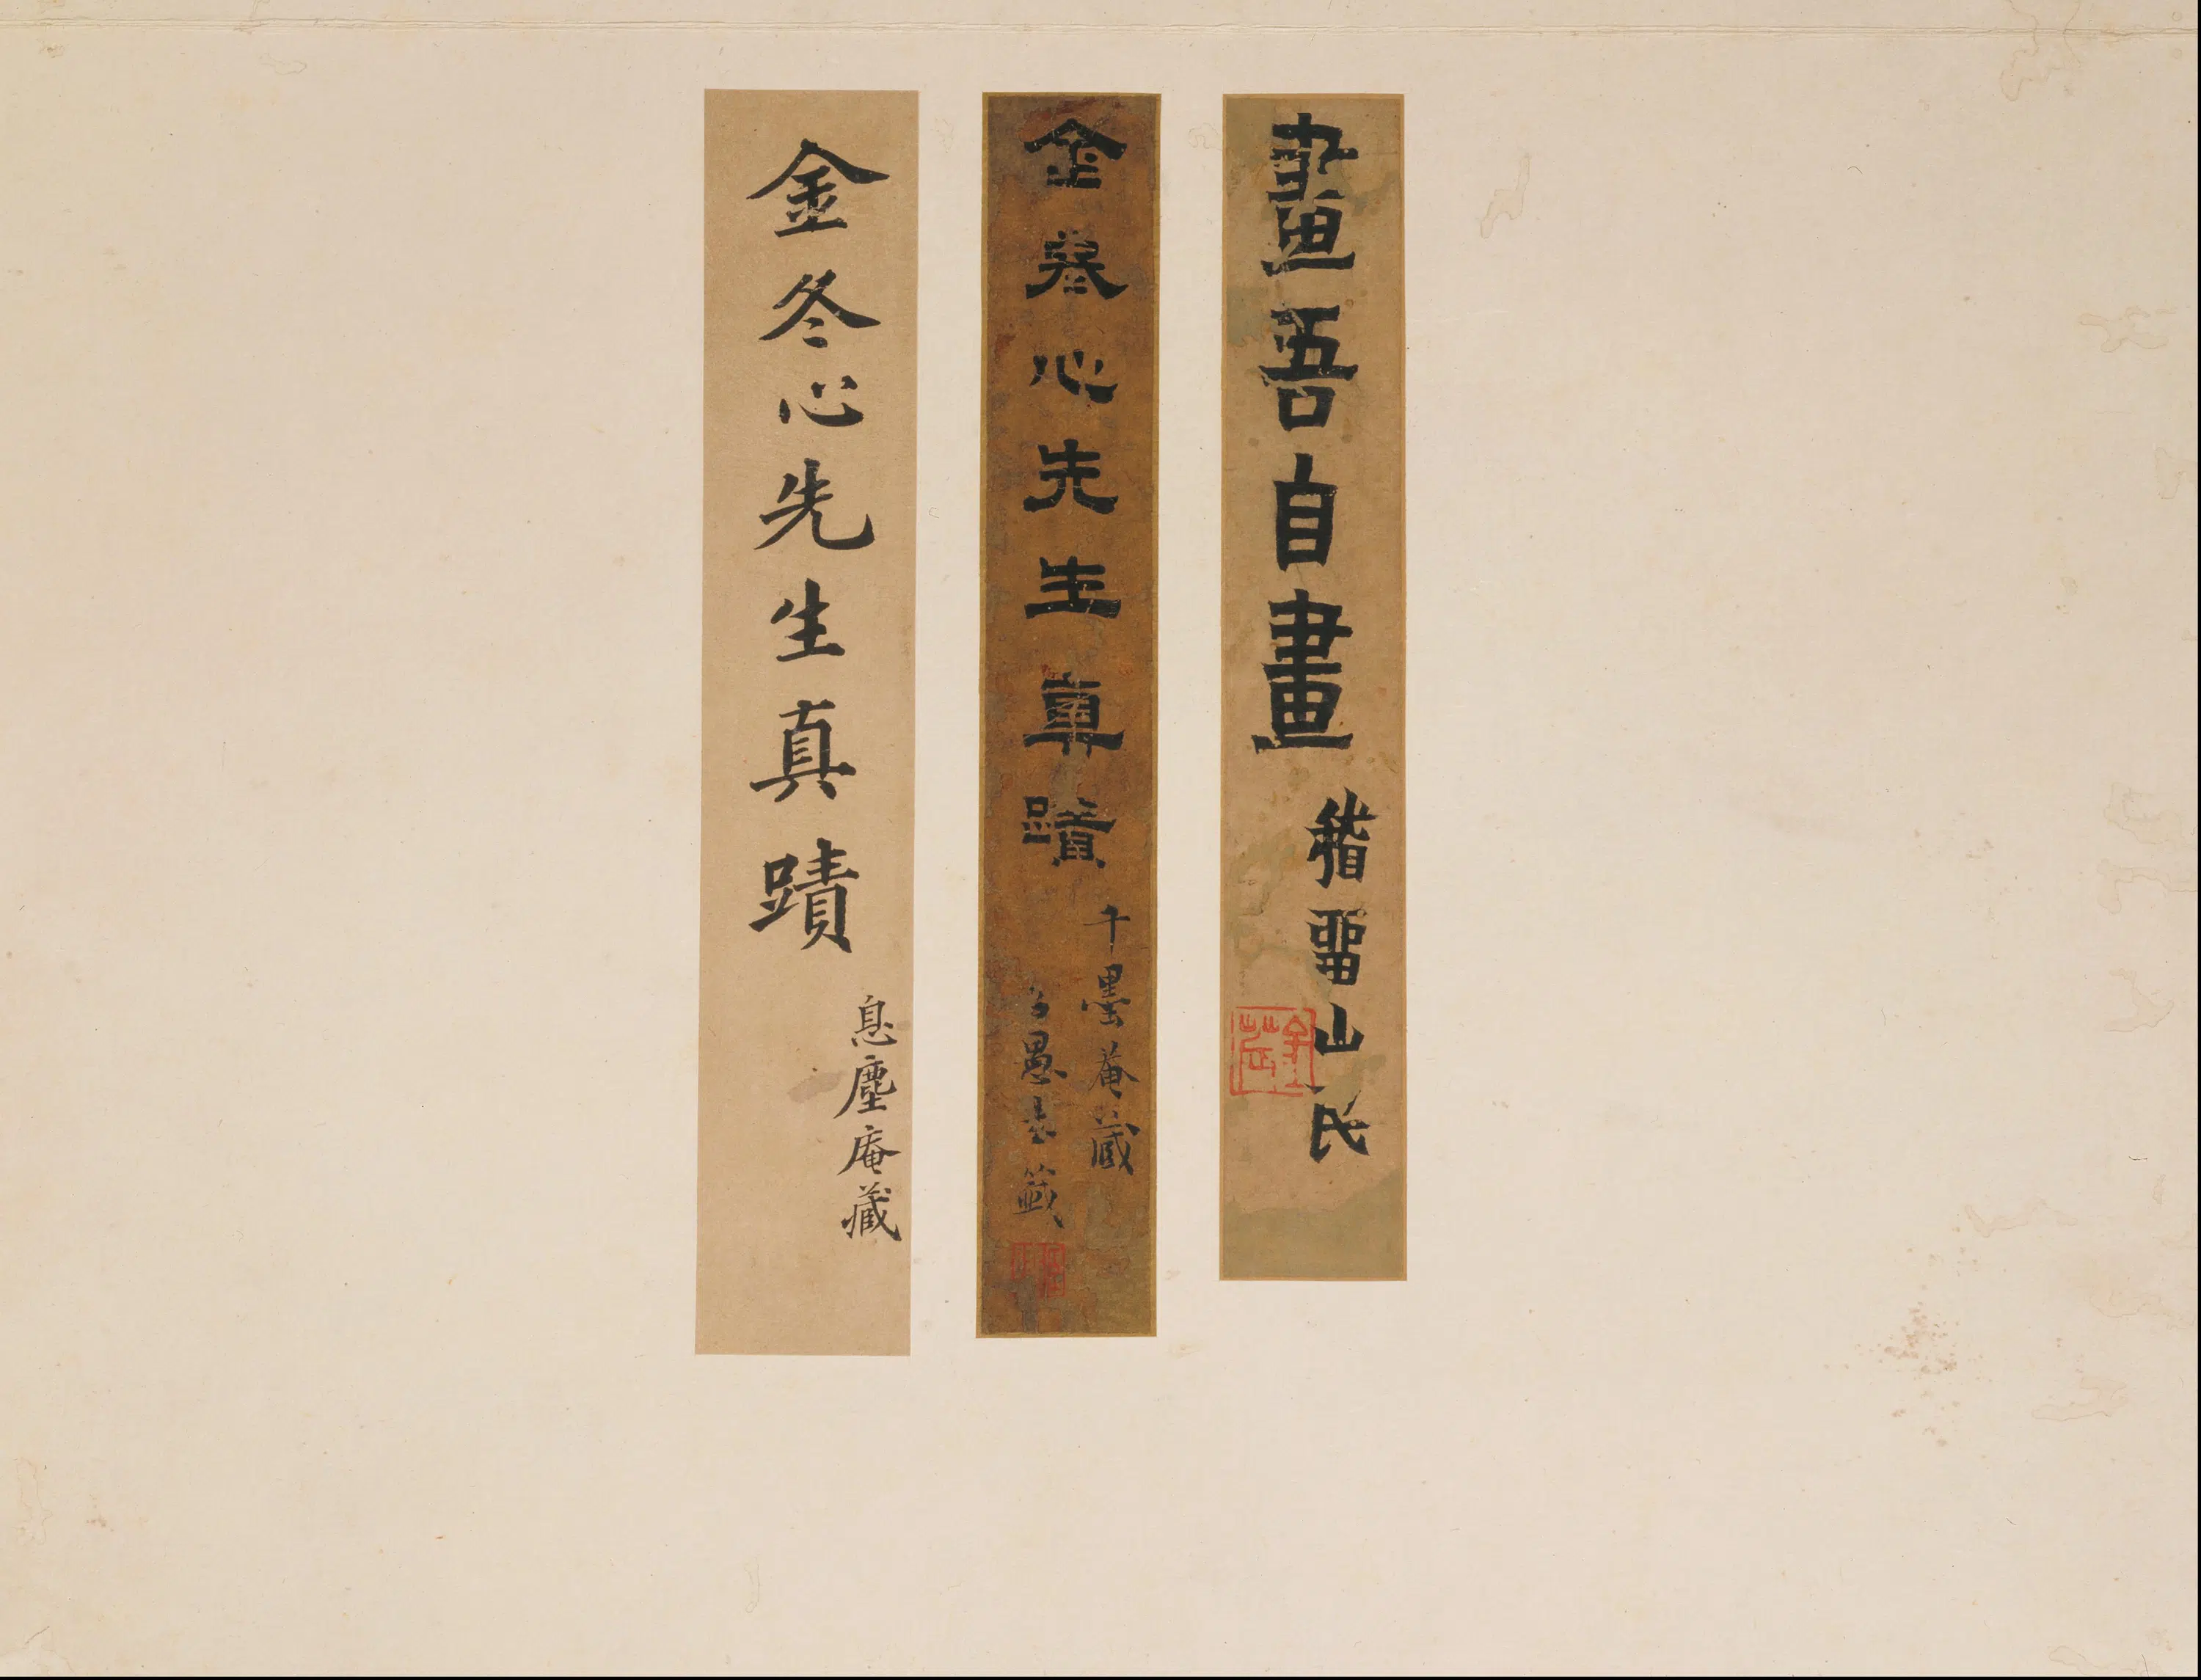 畫吾自畫
稽畱山民
金冬心先生真蹟
千墨菴藏
愚
籖
金冬心先生真蹟
息塵庵藏